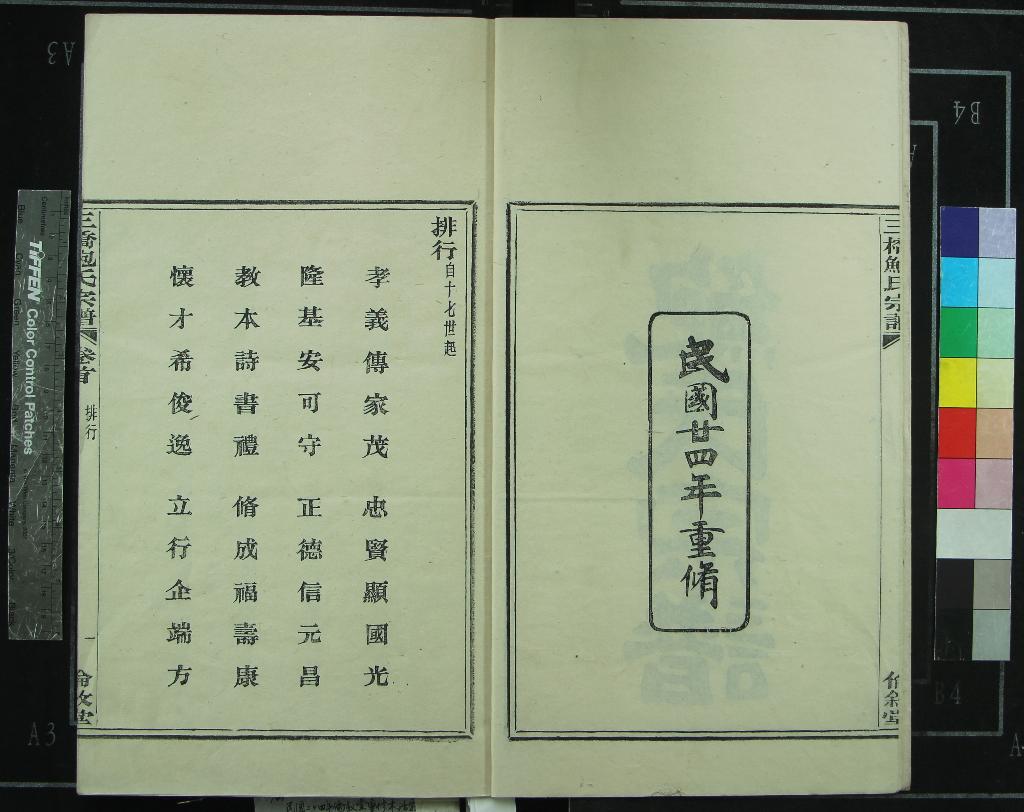 民國廿四年重脩
三橋鮑氏宗譜
排行自十七世起
孝義傳家茂 忠賢顯國光
隆基安可守 正德信元昌
教本詩書禮 脩成福壽康
懷才希俊逸 立行企端方
三橋鮑氏宗譜 卷首 排行 一
TIFFEN Color Control Patches
A3
A3
B4
B4